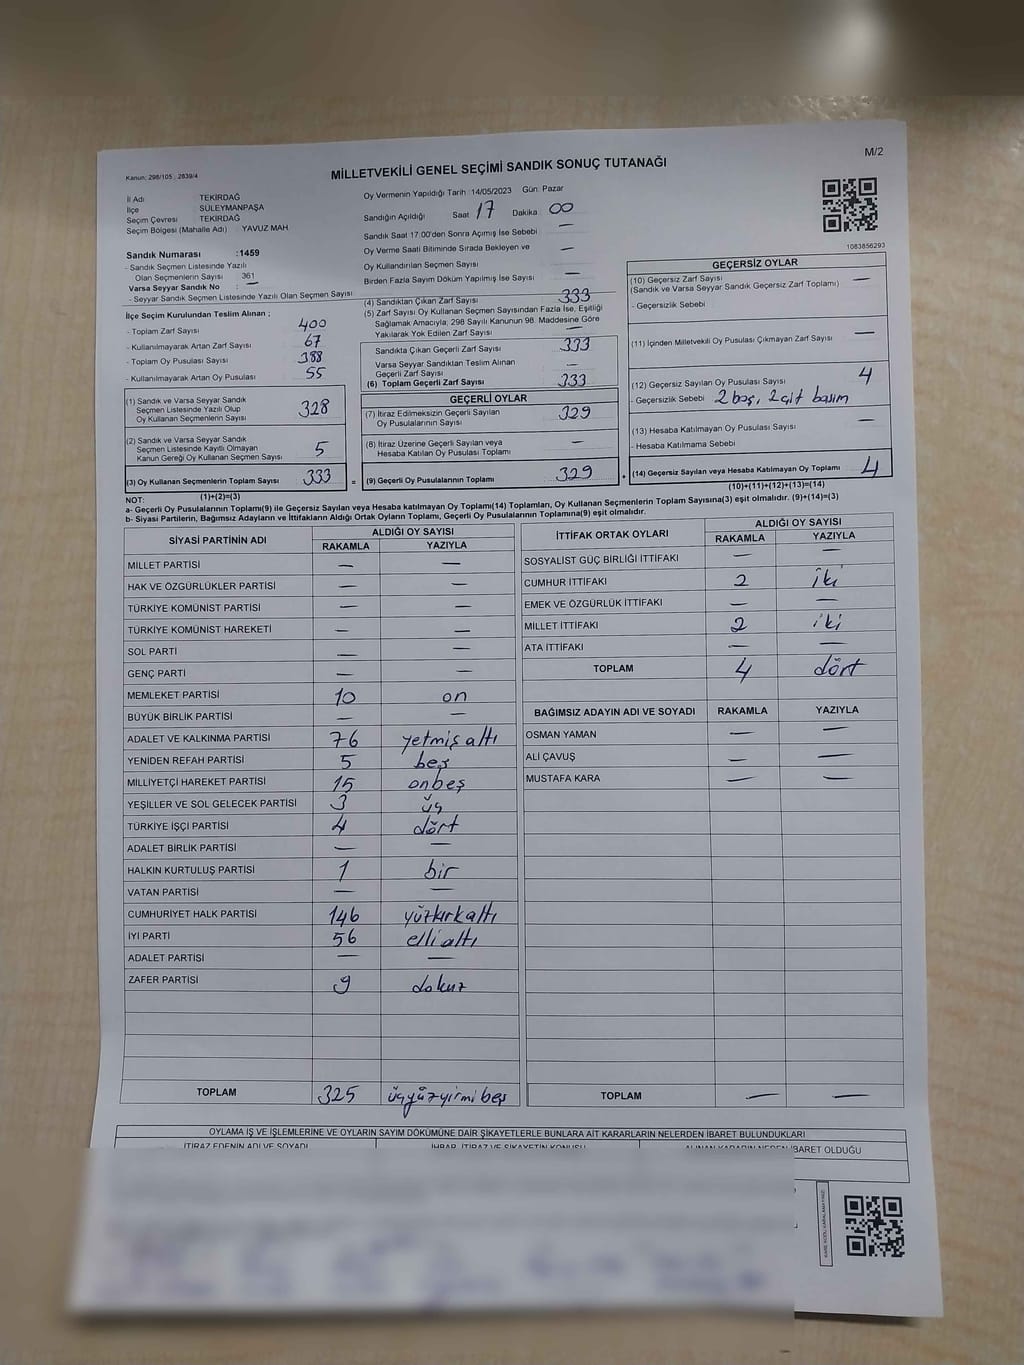 M/2
Kanun: 298/105 , 2839/4
MİLLETVEKİLİ GENEL SEÇİMİ SANDIK SONUÇ TUTANAĞI
İl Adı TEKİRDAĞ
İlçe SÜLEYMANPAŞA
Seçim Çevresi TEKİRDAĞ
Seçim Bölgesi (Mahalle Adı) YAVUZ MAH.
Oy Vermenin Yapıldığı Tarih : 14/05/2023 Gün: Pazar
Sandığın Açıldığı Saat 17 Dakika 00
Sandık Saat 17:00'den Sonra Açılmış İse Sebebi —
Oy Verme Saati Bitiminde Sırada Bekleyen ve —
Oy Kullandırılan Seçmen Sayısı
Birden Fazla Sayım Döküm Yapılmış İse Sayısı —
1083856293
Sandık Numarası :1459
- Sandık Seçmen Listesinde Yazılı
Olan Seçmenlerin Sayısı 361
Varsa Seyyar Sandık No : —
- Seyyar Sandık Seçmen Listesinde Yazılı Olan Seçmen Sayısı
İlçe Seçim Kurulundan Teslim Alınan ;
- Toplam Zarf Sayısı 400
- Kullanılmayarak Artan Zarf Sayısı 67
- Toplam Oy Pusulası Sayısı 388
- Kullanılmayarak Artan Oy Pusulası 55
(1) Sandık ve Varsa Seyyar Sandık
Seçmen Listesinde Yazılı Olup
Oy Kullanan Seçmenlerin Sayısı 328
(2) Sandık ve Varsa Seyyar Sandık
Seçmen Listesinde Kayıtlı Olmayan
Kanun Gereği Oy Kullanan Seçmen Sayısı 5
(3) Oy Kullanan Seçmenlerin Toplam Sayısı 333 =
(1)+(2)=(3)
(4) Sandıktan Çıkan Zarf Sayısı 333
(5) Zarf Sayısı Oy Kullanan Seçmen Sayısından Fazla İse, Eşitliği
Sağlamak Amacıyla, 298 Sayılı Kanunun 98. Maddesine Göre
Yakılarak Yok Edilen Zarf Sayısı —
Sandıkta Çıkan Geçerli Zarf Sayısı 333
Varsa Seyyar Sandıktan Teslim Alınan
Geçerli Zarf Sayısı —
(6) Toplam Geçerli Zarf Sayısı 333
GEÇERLİ OYLAR
(7) İtiraz Edilmeksizin Geçerli Sayılan
Oy Pusulalarının Sayısı 329
(8) İtiraz Üzerine Geçerli Sayılan veya
Hesaba Katılan Oy Pusulası Toplamı —
(9) Geçerli Oy Pusulalarının Toplamı 329 +
GEÇERSİZ OYLAR
(10) Geçersiz Zarf Sayısı —
(Sandık ve Varsa Seyyar Sandık Geçersiz Zarf Toplamı)
- Geçersizlik Sebebi
(11) İçinden Milletvekili Oy Pusulası Çıkmayan Zarf Sayısı —
(12) Geçersiz Sayılan Oy Pusulası Sayısı 4
- Geçersizlik Sebebi 2 boş, 2 çift basım
(13) Hesaba Katılmayan Oy Pusulası Sayısı —
- Hesaba Katılmama Sebebi
(14) Geçersiz Sayılan veya Hesaba Katılmayan Oy Toplamı 4
(10)+(11)+(12)+(13)=(14)
NOT:
a- Geçerli Oy Pusulalarının Toplamı(9) ile Geçersiz Sayılan veya Hesaba katılmayan Oy Toplamı(14) Toplamları, Oy Kullanan Seçmenlerin Toplam Sayısına(3) eşit olmalıdır. (9)+(14)=(3)
b- Siyasi Partilerin, Bağımsız Adayların ve İttifakların Aldığı Ortak Oyların Toplamı, Geçerli Oy Pusulalarının Toplamına(9) eşit olmalıdır.
SİYASİ PARTİNİN ADI ALDIĞI OY SAYISI
RAKAMLA YAZIYLA
MİLLET PARTİSİ — —
HAK VE ÖZGÜRLÜKLER PARTİSİ — —
TÜRKİYE KOMÜNİST PARTİSİ — —
TÜRKİYE KOMÜNİST HAREKETİ — —
SOL PARTİ — —
GENÇ PARTİ — —
MEMLEKET PARTİSİ 10 on
BÜYÜK BİRLİK PARTİSİ — —
ADALET VE KALKINMA PARTİSİ 76 yetmiş altı
YENİDEN REFAH PARTİSİ 5 beş
MİLLİYETÇİ HAREKET PARTİSİ 15 onbeş
YEŞİLLER VE SOL GELECEK PARTİSİ 3 üç
TÜRKİYE İŞÇİ PARTİSİ 4 dört
ADALET BİRLİK PARTİSİ — —
HALKIN KURTULUŞ PARTİSİ 1 bir
VATAN PARTİSİ — —
CUMHURİYET HALK PARTİSİ 146 yüzkırkaltı
İYİ PARTİ 56 elli altı
ADALET PARTİSİ — —
ZAFER PARTİSİ 9 dokuz
TOPLAM 325 üçyüzyirmi beş
İTTİFAK ORTAK OYLARI ALDIĞI OY SAYISI
RAKAMLA YAZIYLA
SOSYALİST GÜÇ BİRLİĞİ İTTİFAKI — —
CUMHUR İTTİFAKI 2 iki
EMEK VE ÖZGÜRLÜK İTTİFAKI — —
MİLLET İTTİFAKI 2 iki
ATA İTTİFAKI — —
TOPLAM 4 dört
BAĞIMSIZ ADAYIN ADI VE SOYADI RAKAMLA YAZIYLA
OSMAN YAMAN — —
ALİ ÇAVUŞ — —
MUSTAFA KARA — —
TOPLAM — —
OYLAMA İŞ VE İŞLEMLERİNE VE OYLARIN SAYIM DÖKÜMÜNE DAİR ŞİKAYETLERLE BUNLARA AİT KARARLARIN NELERDEN İBARET BULUNDUKLARI
İTİRAZ EDENİN ADI VE SOYADI İHBAR, İTİRAZ VE ŞİKAYETİN KONUSU ALINAN KARARIN NEDEN İBARET OLDUĞU